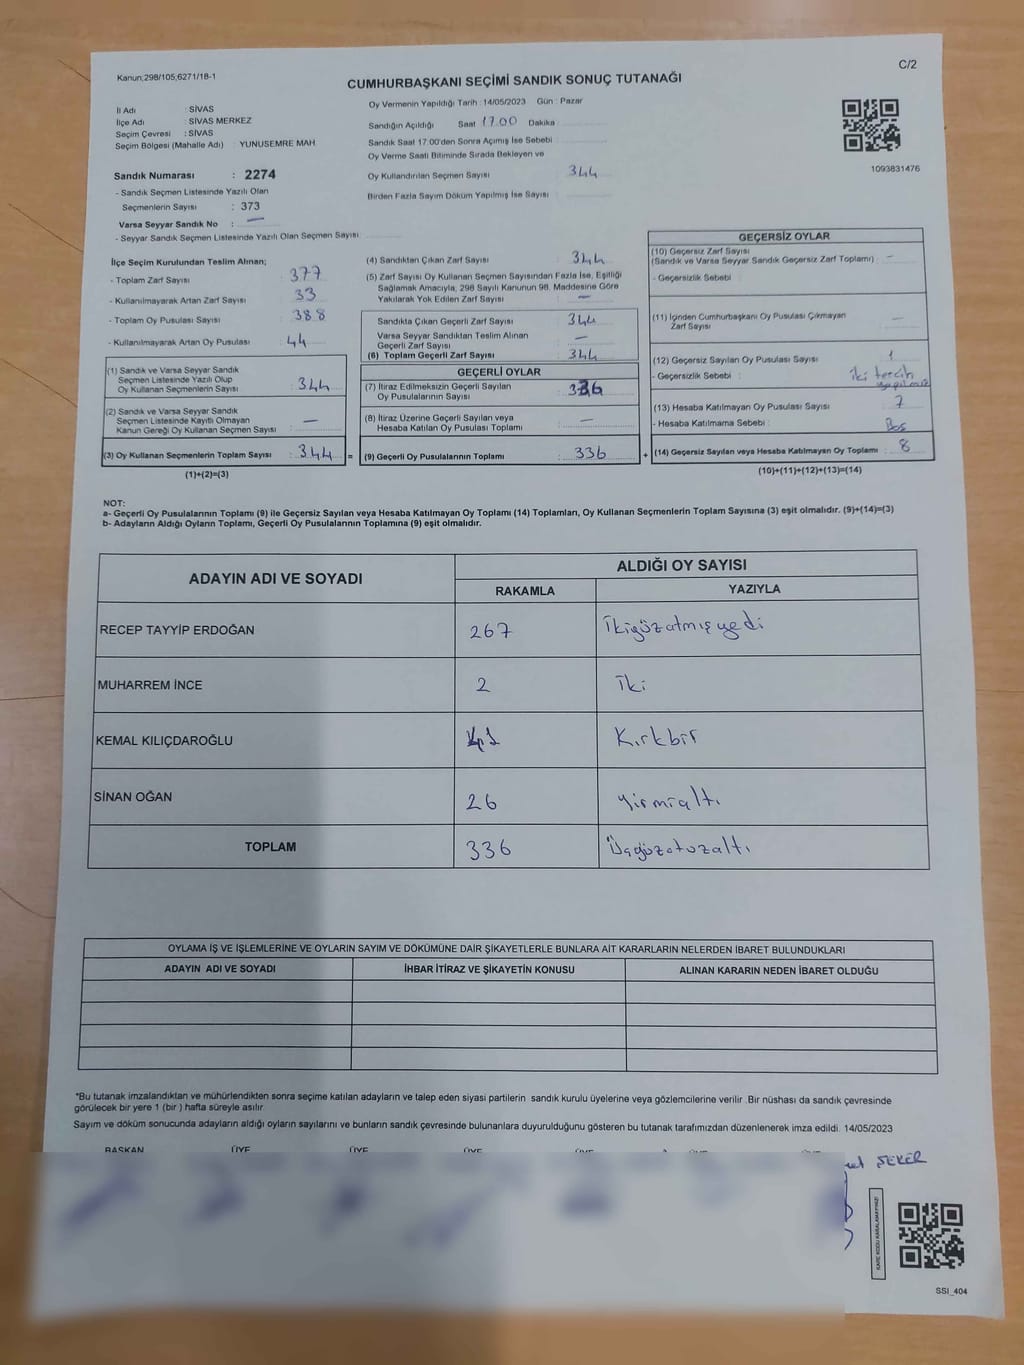 Kanun;298/105,6271/18-1
C/2
CUMHURBAŞKANI SEÇİMİ SANDIK SONUÇ TUTANAĞI
İl Adı : SİVAS
İlçe Adı : SİVAS MERKEZ
Seçim Çevresi : SİVAS
Seçim Bölgesi (Mahalle Adı) : YUNUSEMRE MAH.
Oy Vermenin Yapıldığı Tarih : 14/05/2023 Gün : Pazar
Sandığın Açıldığı Saat 17.00 Dakika
Sandık Saat 17:00'den Sonra Açımış İse Sebebi :
Oy Verme Saati Bitiminde Sırada Bekleyen ve
Oy Kullandırılan Seçmen Sayısı : 344
Birden Fazla Sayım Döküm Yapılmış İse Sayısı :
1093831476
Sandık Numarası : 2274
- Sandık Seçmen Listesinde Yazılı Olan
Seçmenlerin Sayısı : 373
Varsa Seyyar Sandık No : —
- Seyyar Sandık Seçmen Listesinde Yazılı Olan Seçmen Sayısı :
İlçe Seçim Kurulundan Teslim Alınan;
- Toplam Zarf Sayısı : 377
- Kullanılmayarak Artan Zarf Sayısı : 33
- Toplam Oy Pusulası Sayısı : 388
- Kullanılmayarak Artan Oy Pusulası : 44
(1) Sandık ve Varsa Seyyar Sandık
Seçmen Listesinde Yazılı Olup
Oy Kullanan Seçmenlerin Sayısı : 344
(2) Sandık ve Varsa Seyyar Sandık
Seçmen Listesinde Kayıtlı Olmayan
Kanun Gereği Oy Kullanan Seçmen Sayısı : —
(3) Oy Kullanan Seçmenlerin Toplam Sayısı : 344 =
(1)+(2)=(3)
(4) Sandıktan Çıkan Zarf Sayısı : 344
(5) Zarf Sayısı Oy Kullanan Seçmen Sayısından Fazla İse, Eşitliği
Sağlamak Amacıyla, 298 Sayılı Kanunun 98. Maddesine Göre
Yakılarak Yok Edilen Zarf Sayısı : —
Sandıkta Çıkan Geçerli Zarf Sayısı : 344
Varsa Seyyar Sandıktan Teslim Alınan
Geçerli Zarf Sayısı : —
(6) Toplam Geçerli Zarf Sayısı : 344
GEÇERLİ OYLAR
(7) İtiraz Edilmeksizin Geçerli Sayılan
Oy Pusulasının Sayısı : 336
(8) İtiraz Üzerine Geçerli Sayılan veya
Hesaba Katılan Oy Pusulası Toplamı : —
(9) Geçerli Oy Pusulalarının Toplamı : 336 +
GEÇERSİZ OYLAR
(10) Geçersiz Zarf Sayısı
(Sandık ve Varsa Seyyar Sandık Geçersiz Zarf Toplamı) : —
- Geçersizlik Sebebi :
(11) İçinden Cumhurbaşkanı Oy Pusulası Çıkmayan
Zarf Sayısı : —
(12) Geçersiz Sayılan Oy Pusulası Sayısı : 1
- Geçersizlik Sebebi : iki tercih
yapılmış
(13) Hesaba Katılmayan Oy Pusulası Sayısı : 7
- Hesaba Katılmama Sebebi : Boş
(14) Geçersiz Sayılan veya Hesaba Katılmayan Oy Toplamı : 8
(10)+(11)+(12)+(13)=(14)
NOT:
a- Geçerli Oy Pusulalarının Toplamı (9) ile Geçersiz Sayılan veya Hesaba Katılmayan Oy Toplamı (14) Toplamları, Oy Kullanan Seçmenlerin Toplam Sayısına (3) eşit olmalıdır. (9)+(14)=(3)
b- Adayların Aldığı Oyların Toplamı, Geçerli Oy Pusulalarının Toplamına (9) eşit olmalıdır.
ADAYIN ADI VE SOYADI ALDIĞI OY SAYISI
RAKAMLA YAZIYLA
RECEP TAYYİP ERDOĞAN 267 İkiyüzatmışyedi
MUHARREM İNCE 2 İki
KEMAL KILIÇDAROĞLU 41 Kırkbir
SİNAN OĞAN 26 yirmialtı
TOPLAM 336 Üçyüzotuzaltı
OYLAMA İŞ VE İŞLEMLERİNE VE OYLARIN SAYIM VE DÖKÜMÜNE DAİR ŞİKAYETLERLE BUNLARA AİT KARARLARIN NELERDEN İBARET BULUNDUKLARI
ADAYIN ADI VE SOYADI İHBAR İTİRAZ VE ŞİKAYETİN KONUSU ALINAN KARARIN NEDEN İBARET OLDUĞU
*Bu tutanak imzalandıktan ve mühürlendikten sonra seçime katılan adayların ve talep eden siyasi partilerin sandık kurulu üyelerine veya gözlemcilerine verilir. Bir nüshası da sandık çevresinde
görülecek bir yere 1 (bir ) hafta süreyle asılır.
Sayım ve döküm sonucunda adayların aldığı oyların sayılarını ve bunların sandık çevresinde bulunanlara duyurulduğunu gösteren bu tutanak tarafımızdan düzenlenerek imza edildi. 14/05/2023
BAŞKAN ÜYE ÜYE ÜYE ÜYE
ŞEKER
KARE KODU KARALAMAYINIZ!
SSI_404